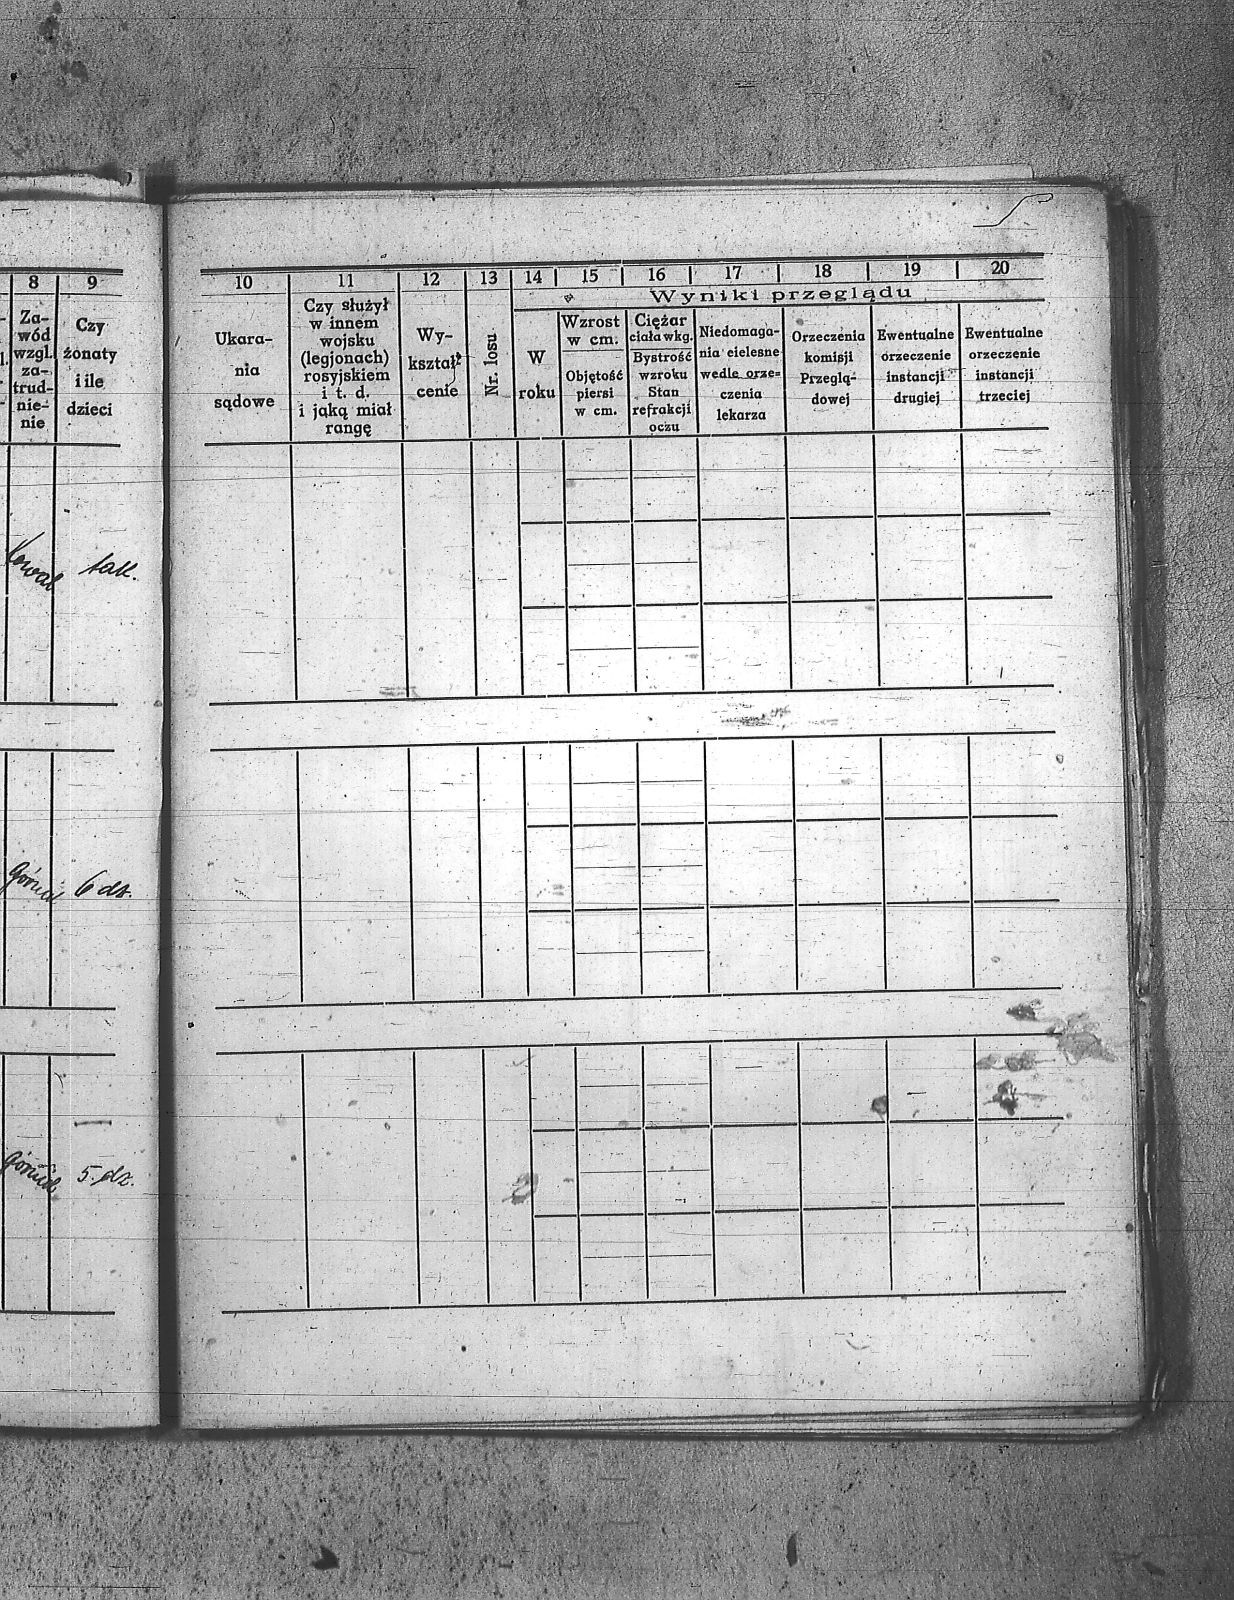 8 9
Za-
wód
wzgl.
za-
trud-
nie-
nie
Czy
żonaty
i ile
dzieci
Kowal tak.
górnik 6 dz.
górnik 5. dz.
10 11 12 13 14 15 16 17 18 19 20
Wyniki przeglądu
Ukara-
nia
sądowe
Czy służył
w innem
wojsku
(legjonach)
rosyjskiem
i t. d.
i jaką miał
rangę
Wy-
kształ-
cenie
Nr. losu
W
roku
Wzrost
w cm.
Objętość
piersi
w cm.
Ciężar
ciała w kg.
Bystrość
wzroku
Stan
refrakcji
oczu
Niedomaga-
nia cielesne
wedle orze-
czenia
lekarza
Orzeczenia
komisji
Przeglą-
dowej
Ewentualne
orzeczenie
instancji
drugiej
Ewentualne
orzeczenie
instancji
trzeciej